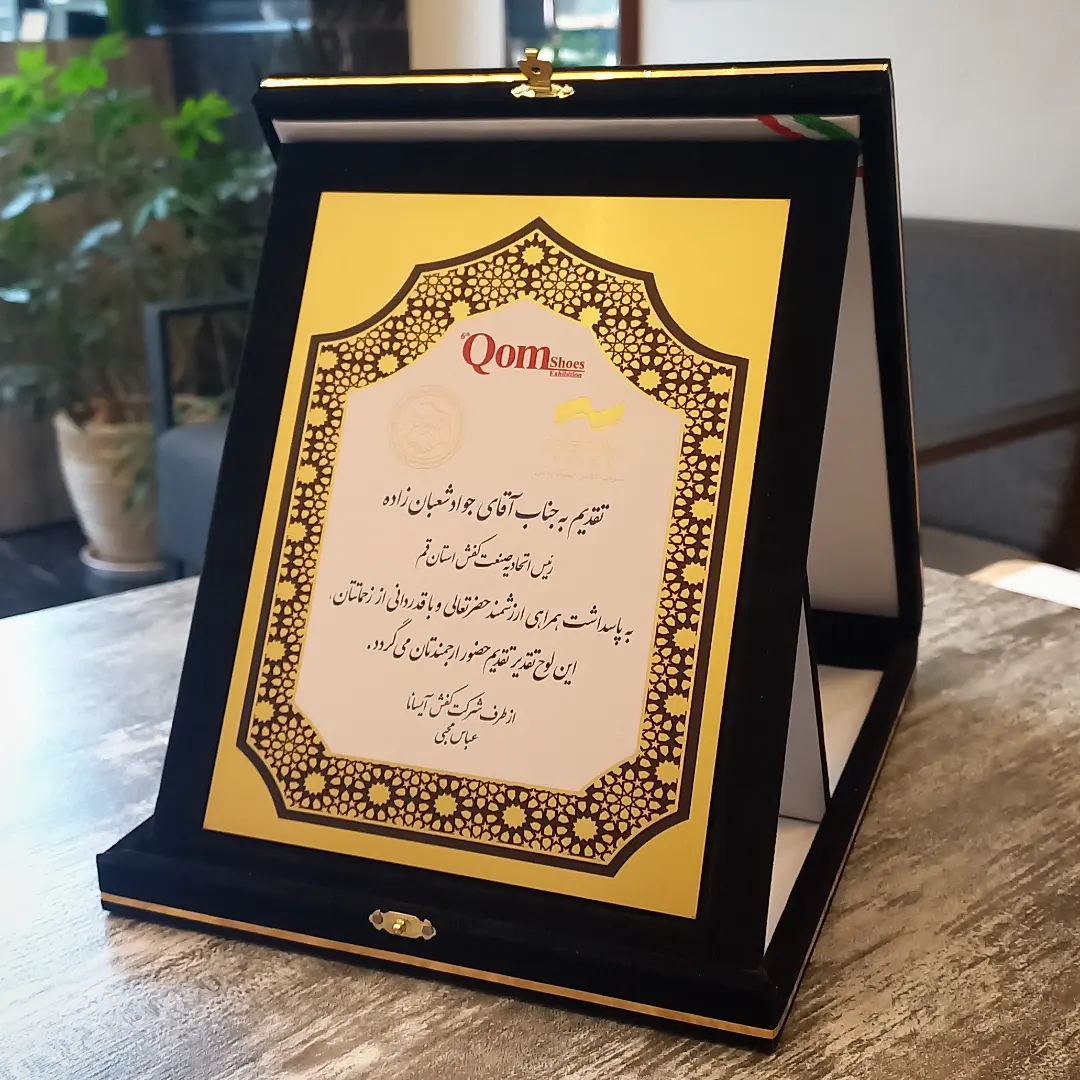 6th Qom Shoes
Exhibition
تقدیم به جناب آقای جواد شعبان زاده
رئیس اتحادیه صنعت کفش استان قم
به پاسداشت همراهی ارزشمند حضرتعالی و با قدردانی از زحماتتان،
این لوح تقدیر تقدیم حضور ارجمندتان می گردد.
از طرف شرکت کفش آیسانا
عباس محبی